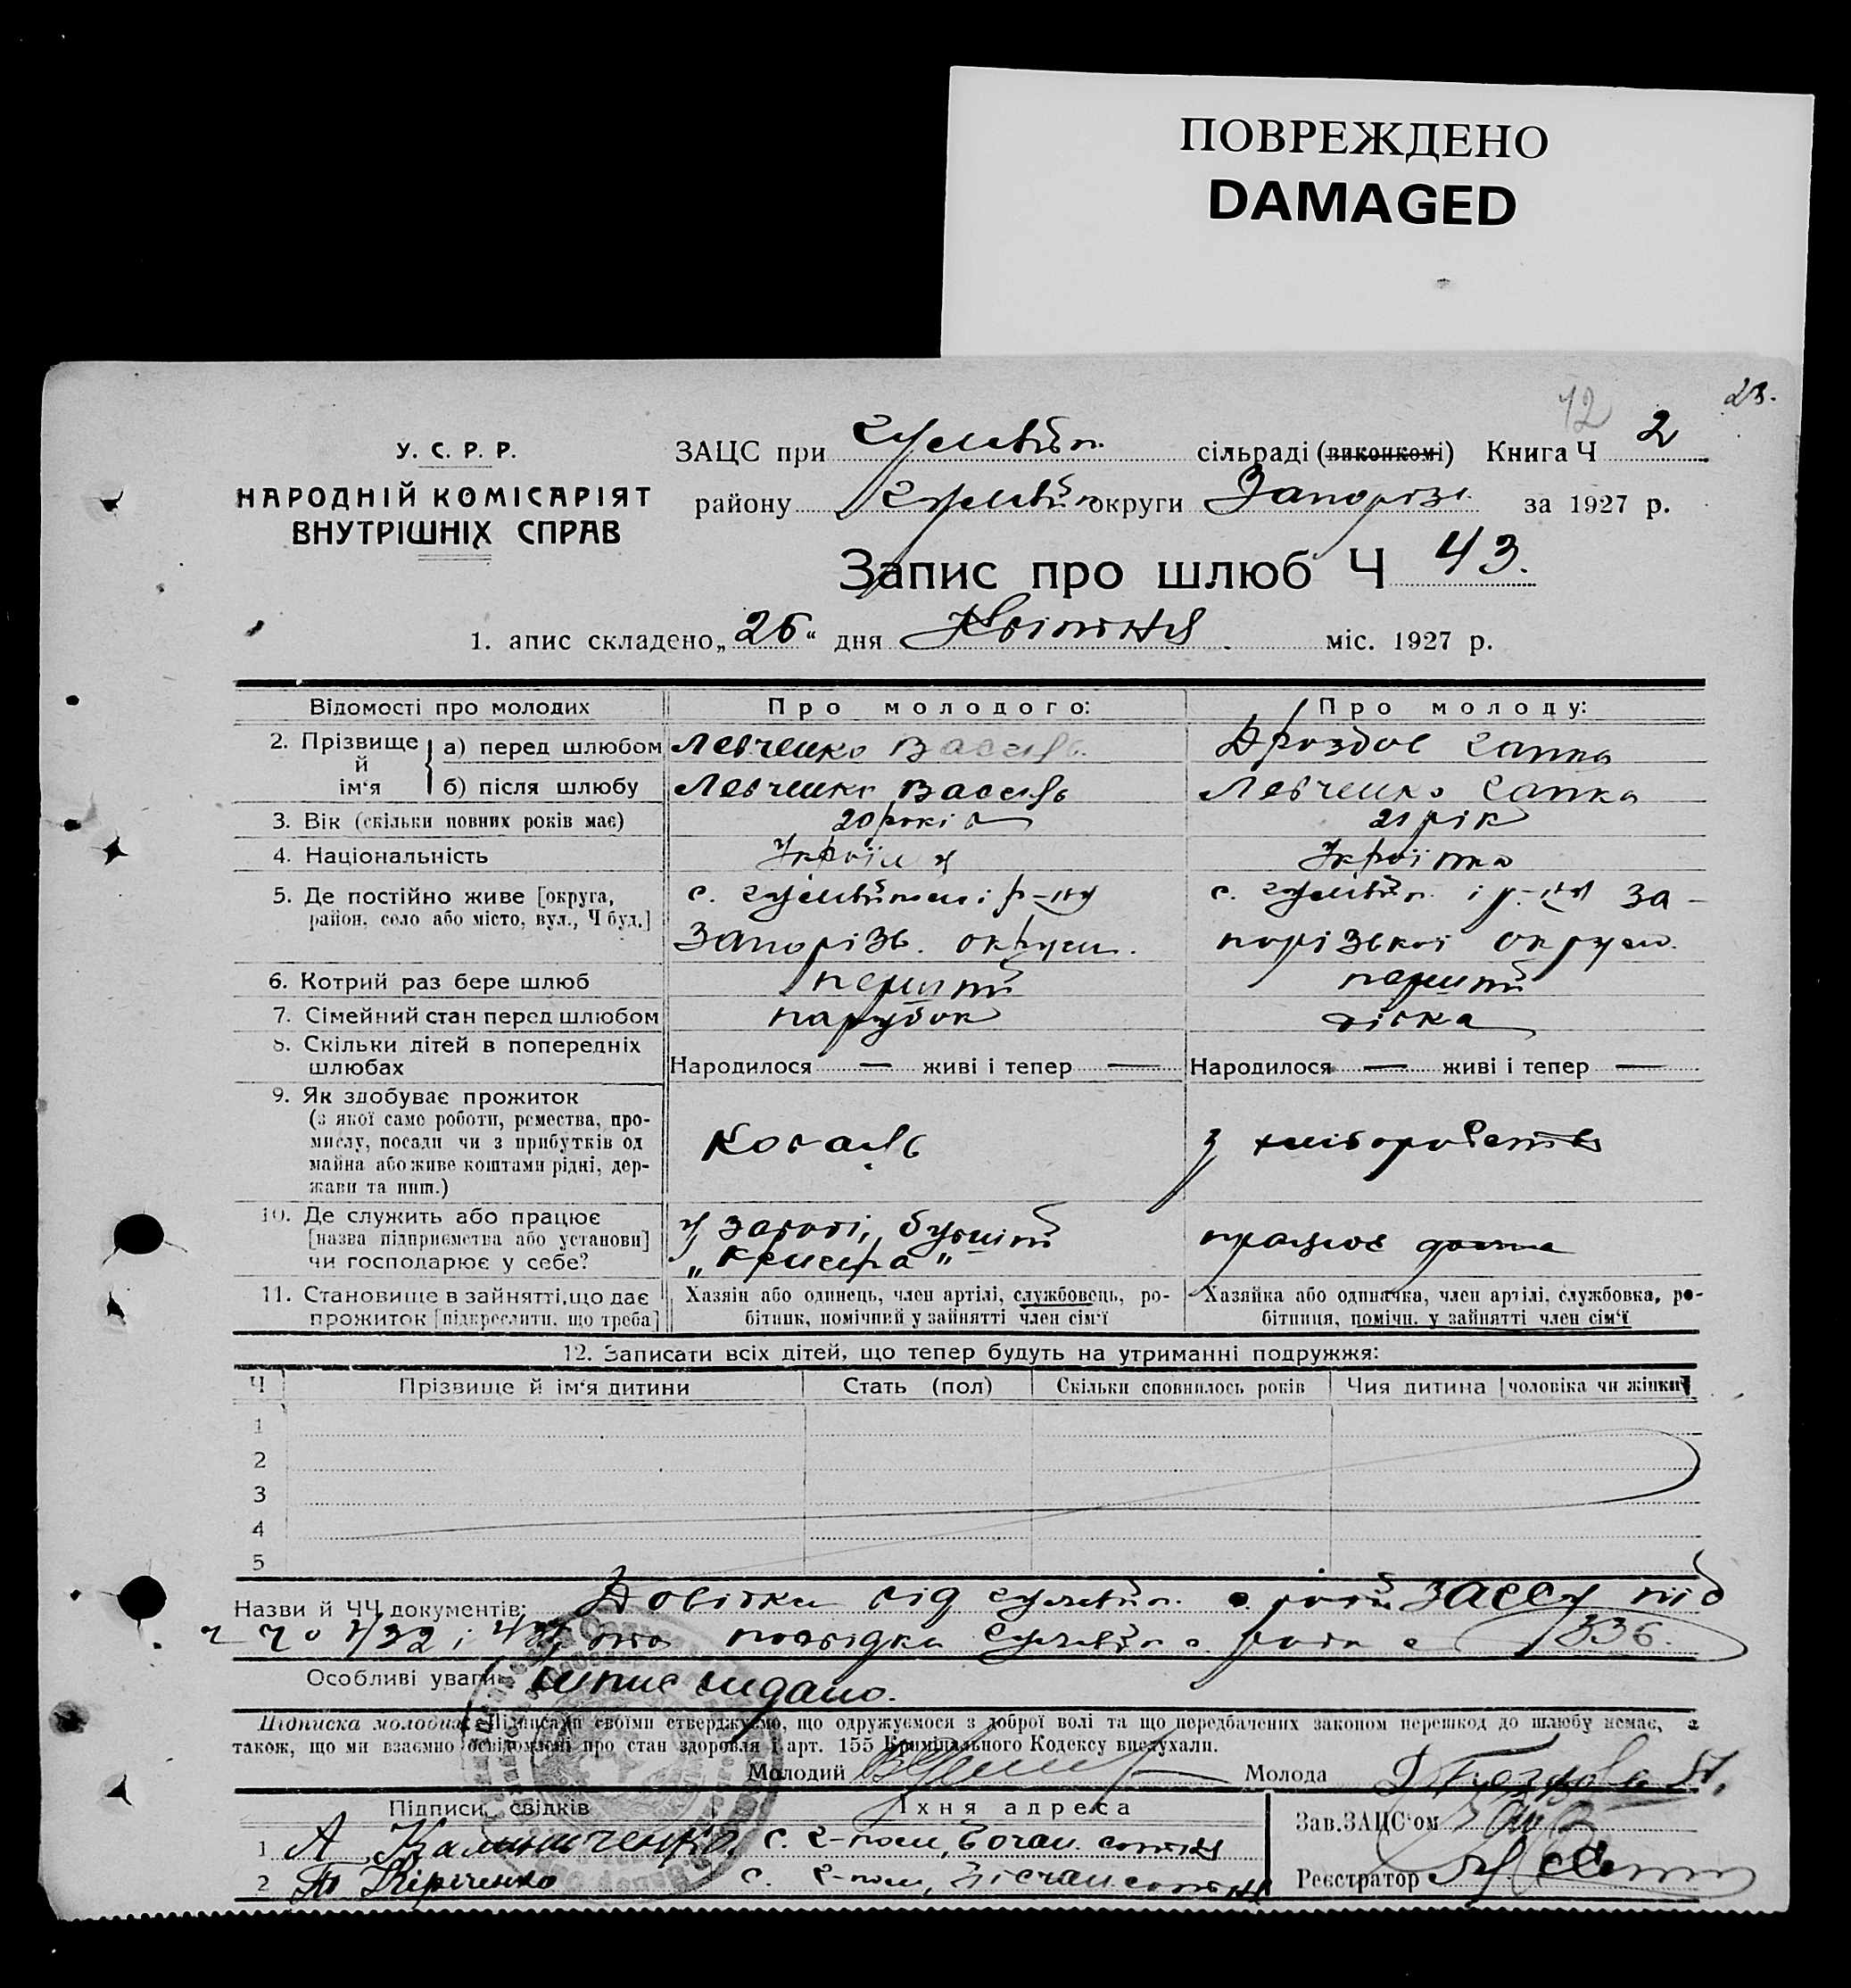 ПОВРЕЖДЕНО
DAMAGED
23.
12
У. С. Р. Р.
НАРОДНІЙ КОМІСАРІЯТ
ВНУТРІШНІХ СПРАВ
ЗАЦС при Гуляйпіл. сільраді (виконкомі) Книга Ч 2
району Гуляйпіл округи Запоріз. за 1927 р.
Запис про шлюб Ч 43.
1. апис складено „26“ дня Квітня міс. 1927 р.
Відомості про молодих Про молодого: Про молоду:
2. Прізвище й ім‘я а) перед шлюбом Левченко Василь Дроздов Гапка
б) після шлюбу Левченко Василь Левченко Гапка
3. Вік (скільки повних років має) 20 років 21 рік
4. Національність Українц Українка
5. Де постійно живе [округа, с. і р-ну с. і р-ну За-
район, село або місто, вул., Ч буд.] Запорізь. округи. порізької округи.
6. Котрий раз бере шлюб перший перший
7. Сімейний стан перед шлюбом парубок дівка
8. Скільки дітей в попередніх
шлюбах Народилося — живі і тепер — Народилося — живі і тепер —
9. Як здобуває прожиток
(з якої само роботи, ремества, про-
мислу, посади чи з прибутків од Коваль з хліборобства
майна або живе коштами рідні, дер-
жави та инш.)
10. Де служить або працює У заводі, бувший
[назва підприємства або установи] „Кригера“ працює дома
чи господарює у себе?
11. Становище в зайнятті, що дає Хазяїн або одинець, член артілі, службовець, ро- Хазяйка або одиначка, член артілі, службовка, ро-
прожиток [підкреслити, що треба] бітник, помічний у зайнятті член сім‘ї бітниця, помічн. у зайнятті член сім‘ї
12. Записати всіх дітей, що тепер будуть на утриманні подружжя:
Ч Прізвище й ім‘я дитини Стать (пол) Скільки сповнилось років Чия дитина [чоловіка чи жінки]
1
2
3
4
5
Назви й ЧЧ документів: Довідки від ЗАССу під
та посвідка 336.
Особливі уваги: видано.
Підписка молодих: Підписами своїми стверджуємо, що одружуємося з доброї волі та що передбачених законом перешкод до шлюбу немає, а
також, що ми взаємно освідомлені про стан здоровля і арт. 155 Кримінального Кодексу вислухали.
Молодий Молода Дроздова
Підписи свідків Їхня адреса Зав. ЗАЦС‘ом
1 А Калиниченко с. Г-поле,
2 Кіриченко с. Г-поле, Реєстратор